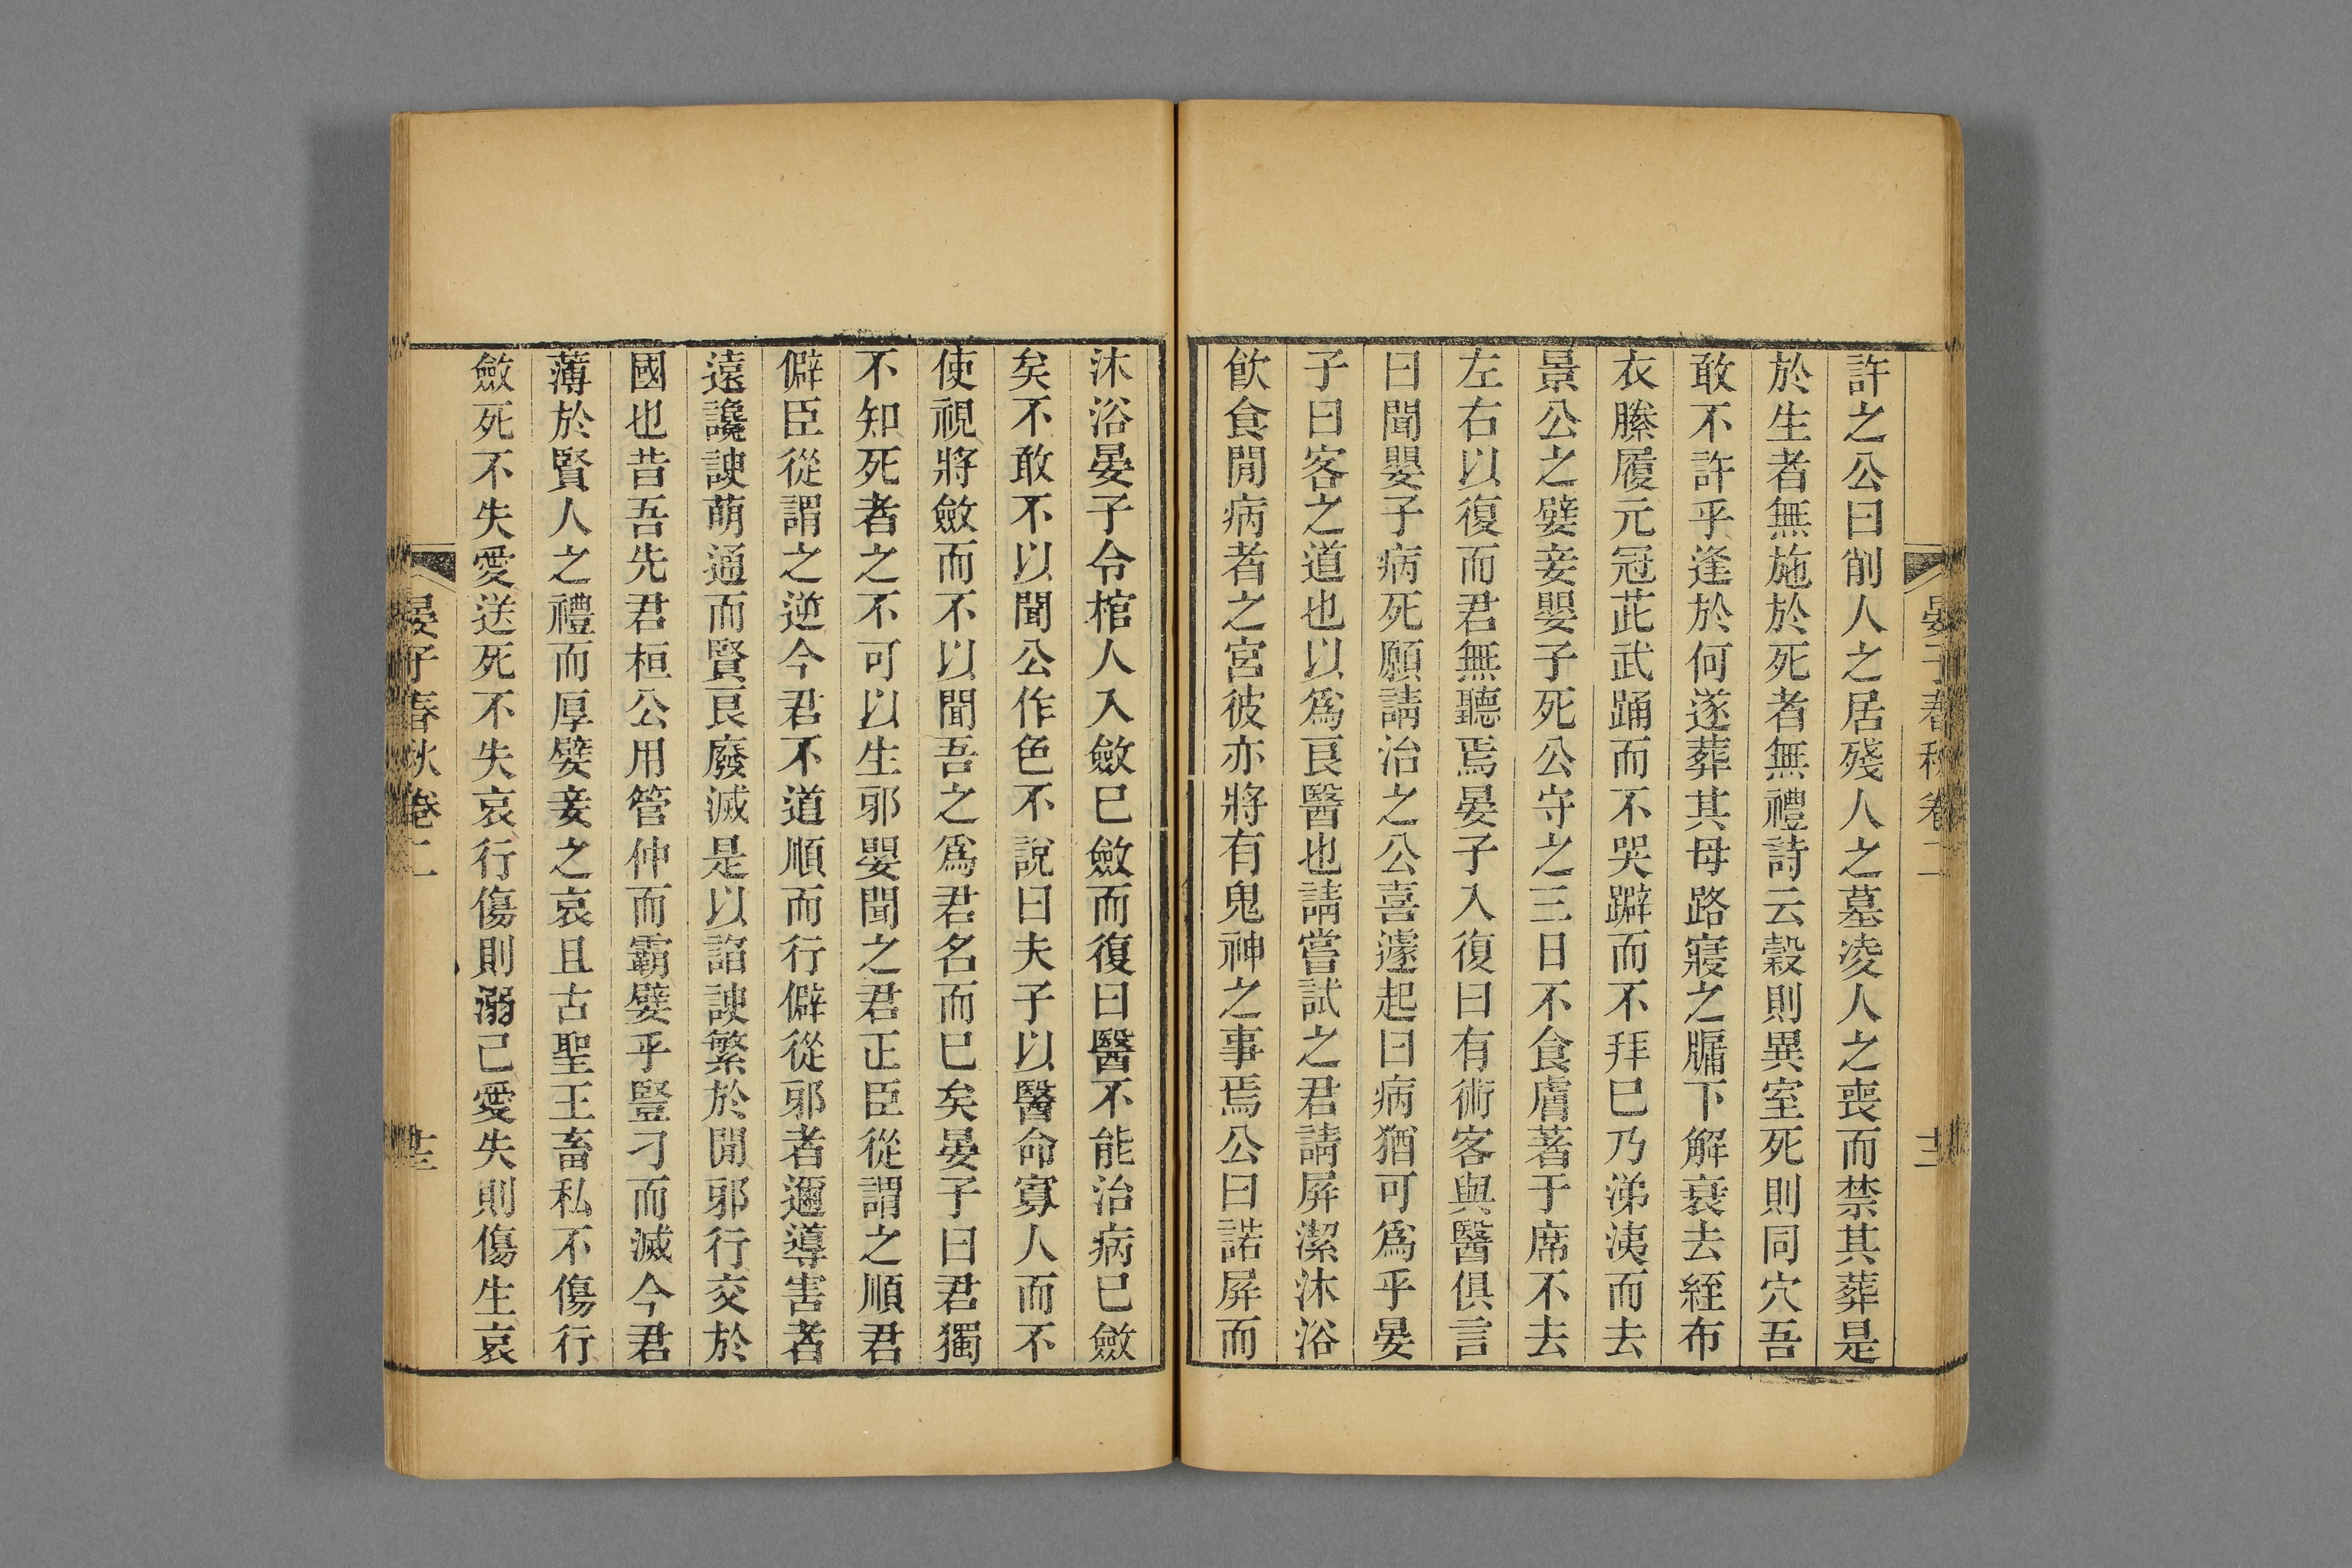 晏子春秋卷二 十二
許之公曰削人之居殘人之墓凌人之喪而禁其葬是
於生者無施於死者無禮詩云穀則異室死則同穴吾
敢不許乎逢於何遂葬其母路寢之牖下解衰去絰布
衣縢履元冠茈武踊而不哭躃而不拜已乃涕洟而去
景公之嬖妾嬰子死公守之三日不食膚著于席不去
左右以復而君無聽焉晏子入復曰有術客與醫俱言
曰聞嬰子病死願請治之公喜遽起曰病猶可爲乎晏
子曰客之道也以爲良醫也請嘗試之君請屏潔沐浴
飲食閒病者之宮彼亦將有鬼神之事焉公曰諾屏而
沐浴晏子令棺人入斂已斂而復曰醫不能治病已斂
矣不敢不以聞公作色不說曰夫子以醫命寡人而不
使視將斂而不以聞吾之爲君名而已矣晏子曰君獨
不知死者之不可以生邪嬰聞之君正臣從謂之順君
僻臣從謂之逆今君不道順而行僻從邪者邇導害者
遠讒諛萌通而賢良廢滅是以諂諛繁於閒邪行交於
國也昔吾先君桓公用管仲而霸嬖乎豎刁而滅今君
薄於賢人之禮而厚嬖妾之哀且古聖王畜私不傷行
斂死不失愛送死不失哀行傷則溺己愛失則傷生哀
晏子春秋卷二